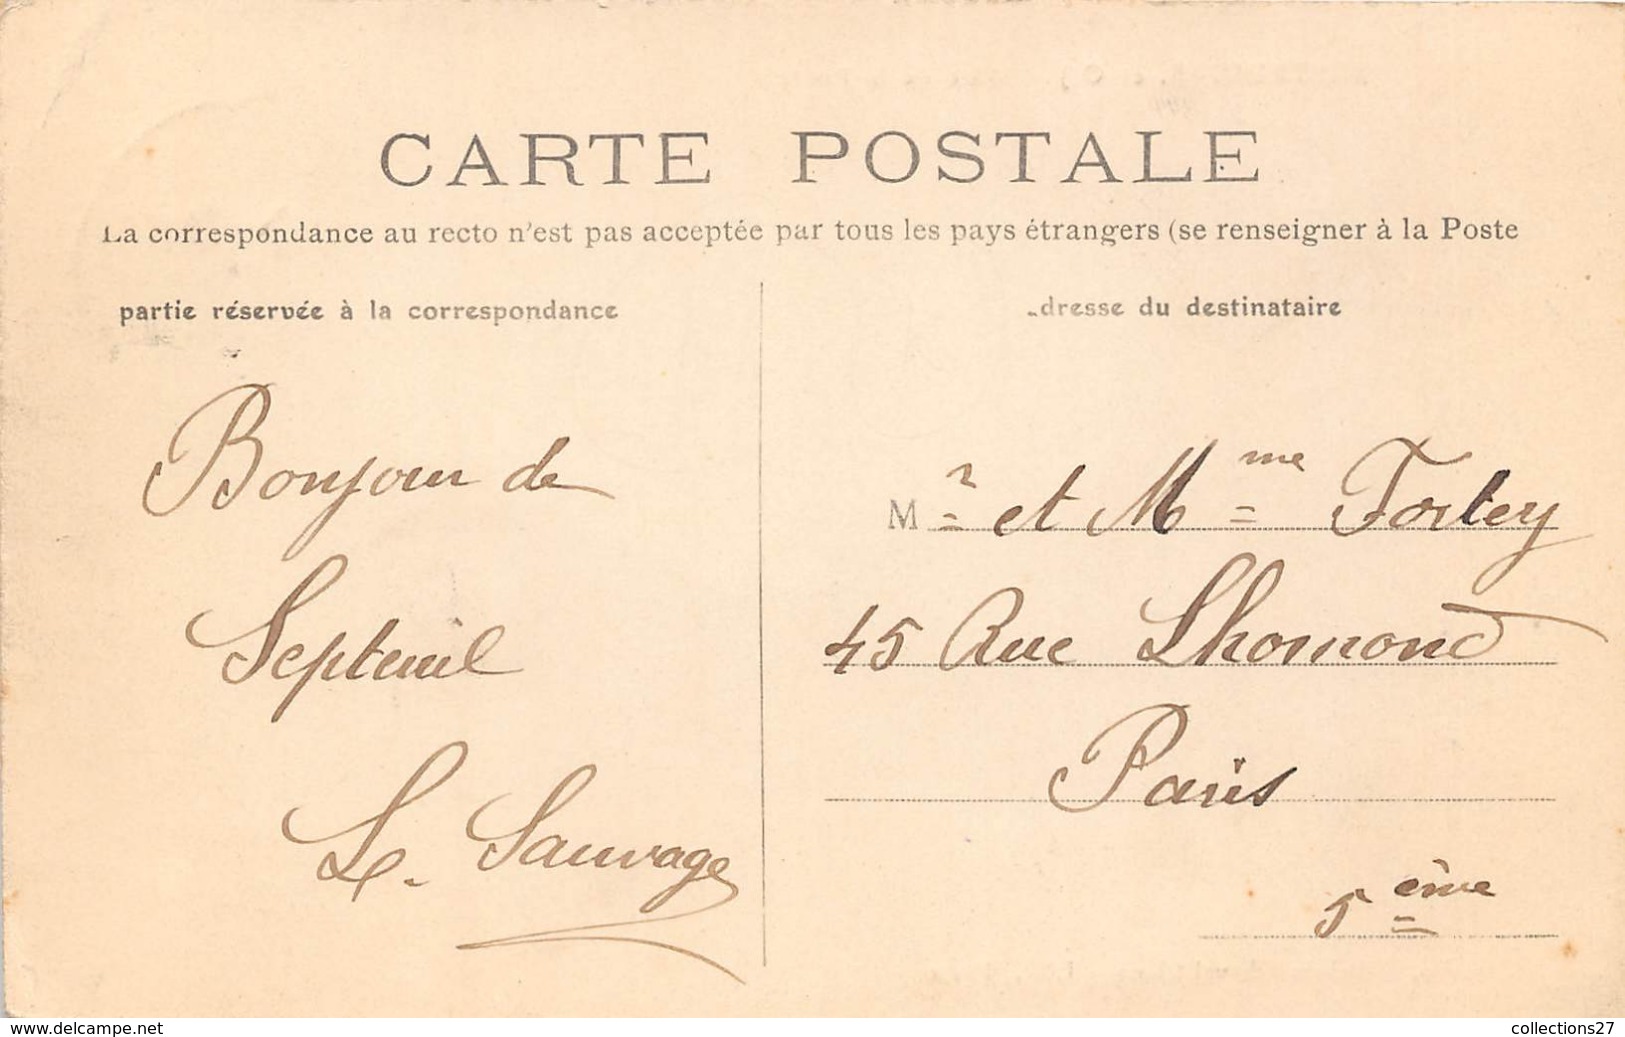 CARTE POSTALE
La correspondance au recto n'est pas acceptée par tous les pays étrangers (se renseigner à la Poste
partie réservée à la correspondance
dresse du destinataire
Bonjour de
Septeuil
L. Sauvage
Mr et Mme Fortey
45 Rue Lhomond
Paris
5ème
www.delcampe.net
collections27